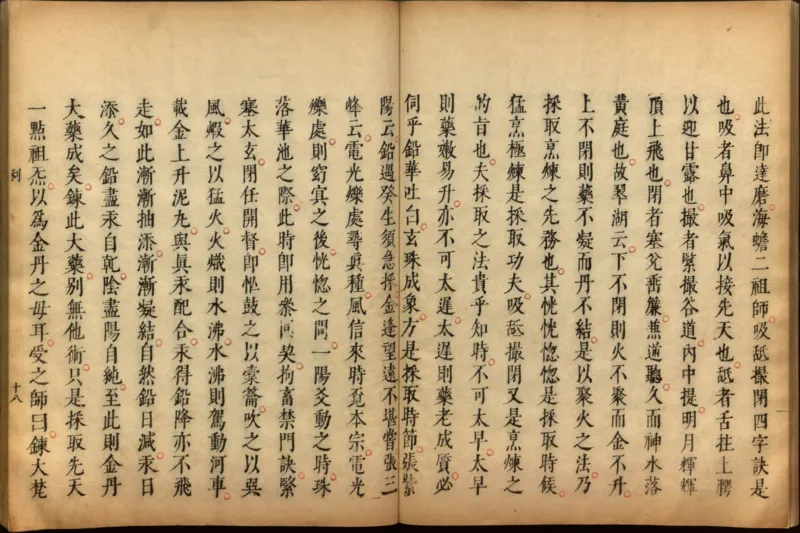 此法卽達磨海蟾二祖師吸舐撮閉四字訣是
也吸者鼻中吸氣以接先天也舐者舌拄上腭
以迎甘露也撮者緊撮谷道內中提明月輝輝
頂上飛也閉者塞兌垂簾兼逆聽久而神水落
黃庭也故翠湖云下不閉則火不聚而金不升
上不閉則藥不凝而丹不結是以聚火之法乃
採取烹煉之先務也其恍恍惚惚是採取時候
猛烹極煉是採取功夫吸舐撮閉又是烹煉之
的旨也夫採取之法貴乎知時不可太早太早
則藥嫩易升亦不可太遲太遲則藥老成質必
伺乎鉛華吐白玄珠成象方是採取時節張紫
陽云鉛遇癸生須急採金逢望遠不堪嘗張三
峰云電光爍處尋眞種風信來時覓本宗電光
爍處則窈冥之後恍惚之間一陽爻動之時珠
落華池之際此時卽用叅同契拘畜禁門訣緊
塞太玄閉任開督卽恹鼓之以橐籥吹之以巽
風煅之以猛火火熾則水沸水沸則駕動河車
載金上升泥九與眞汞配合汞得鉛降亦不飛
走如此漸漸抽添漸漸凝結自然鉛日減汞日
添久之鉛盡汞自乾陰盡陽自純至此則金丹
大藥成矣鍊此大藥別無他術只是採取先天
一點祖炁以爲金丹之毋耳受之師曰鍊大梵
列
十八